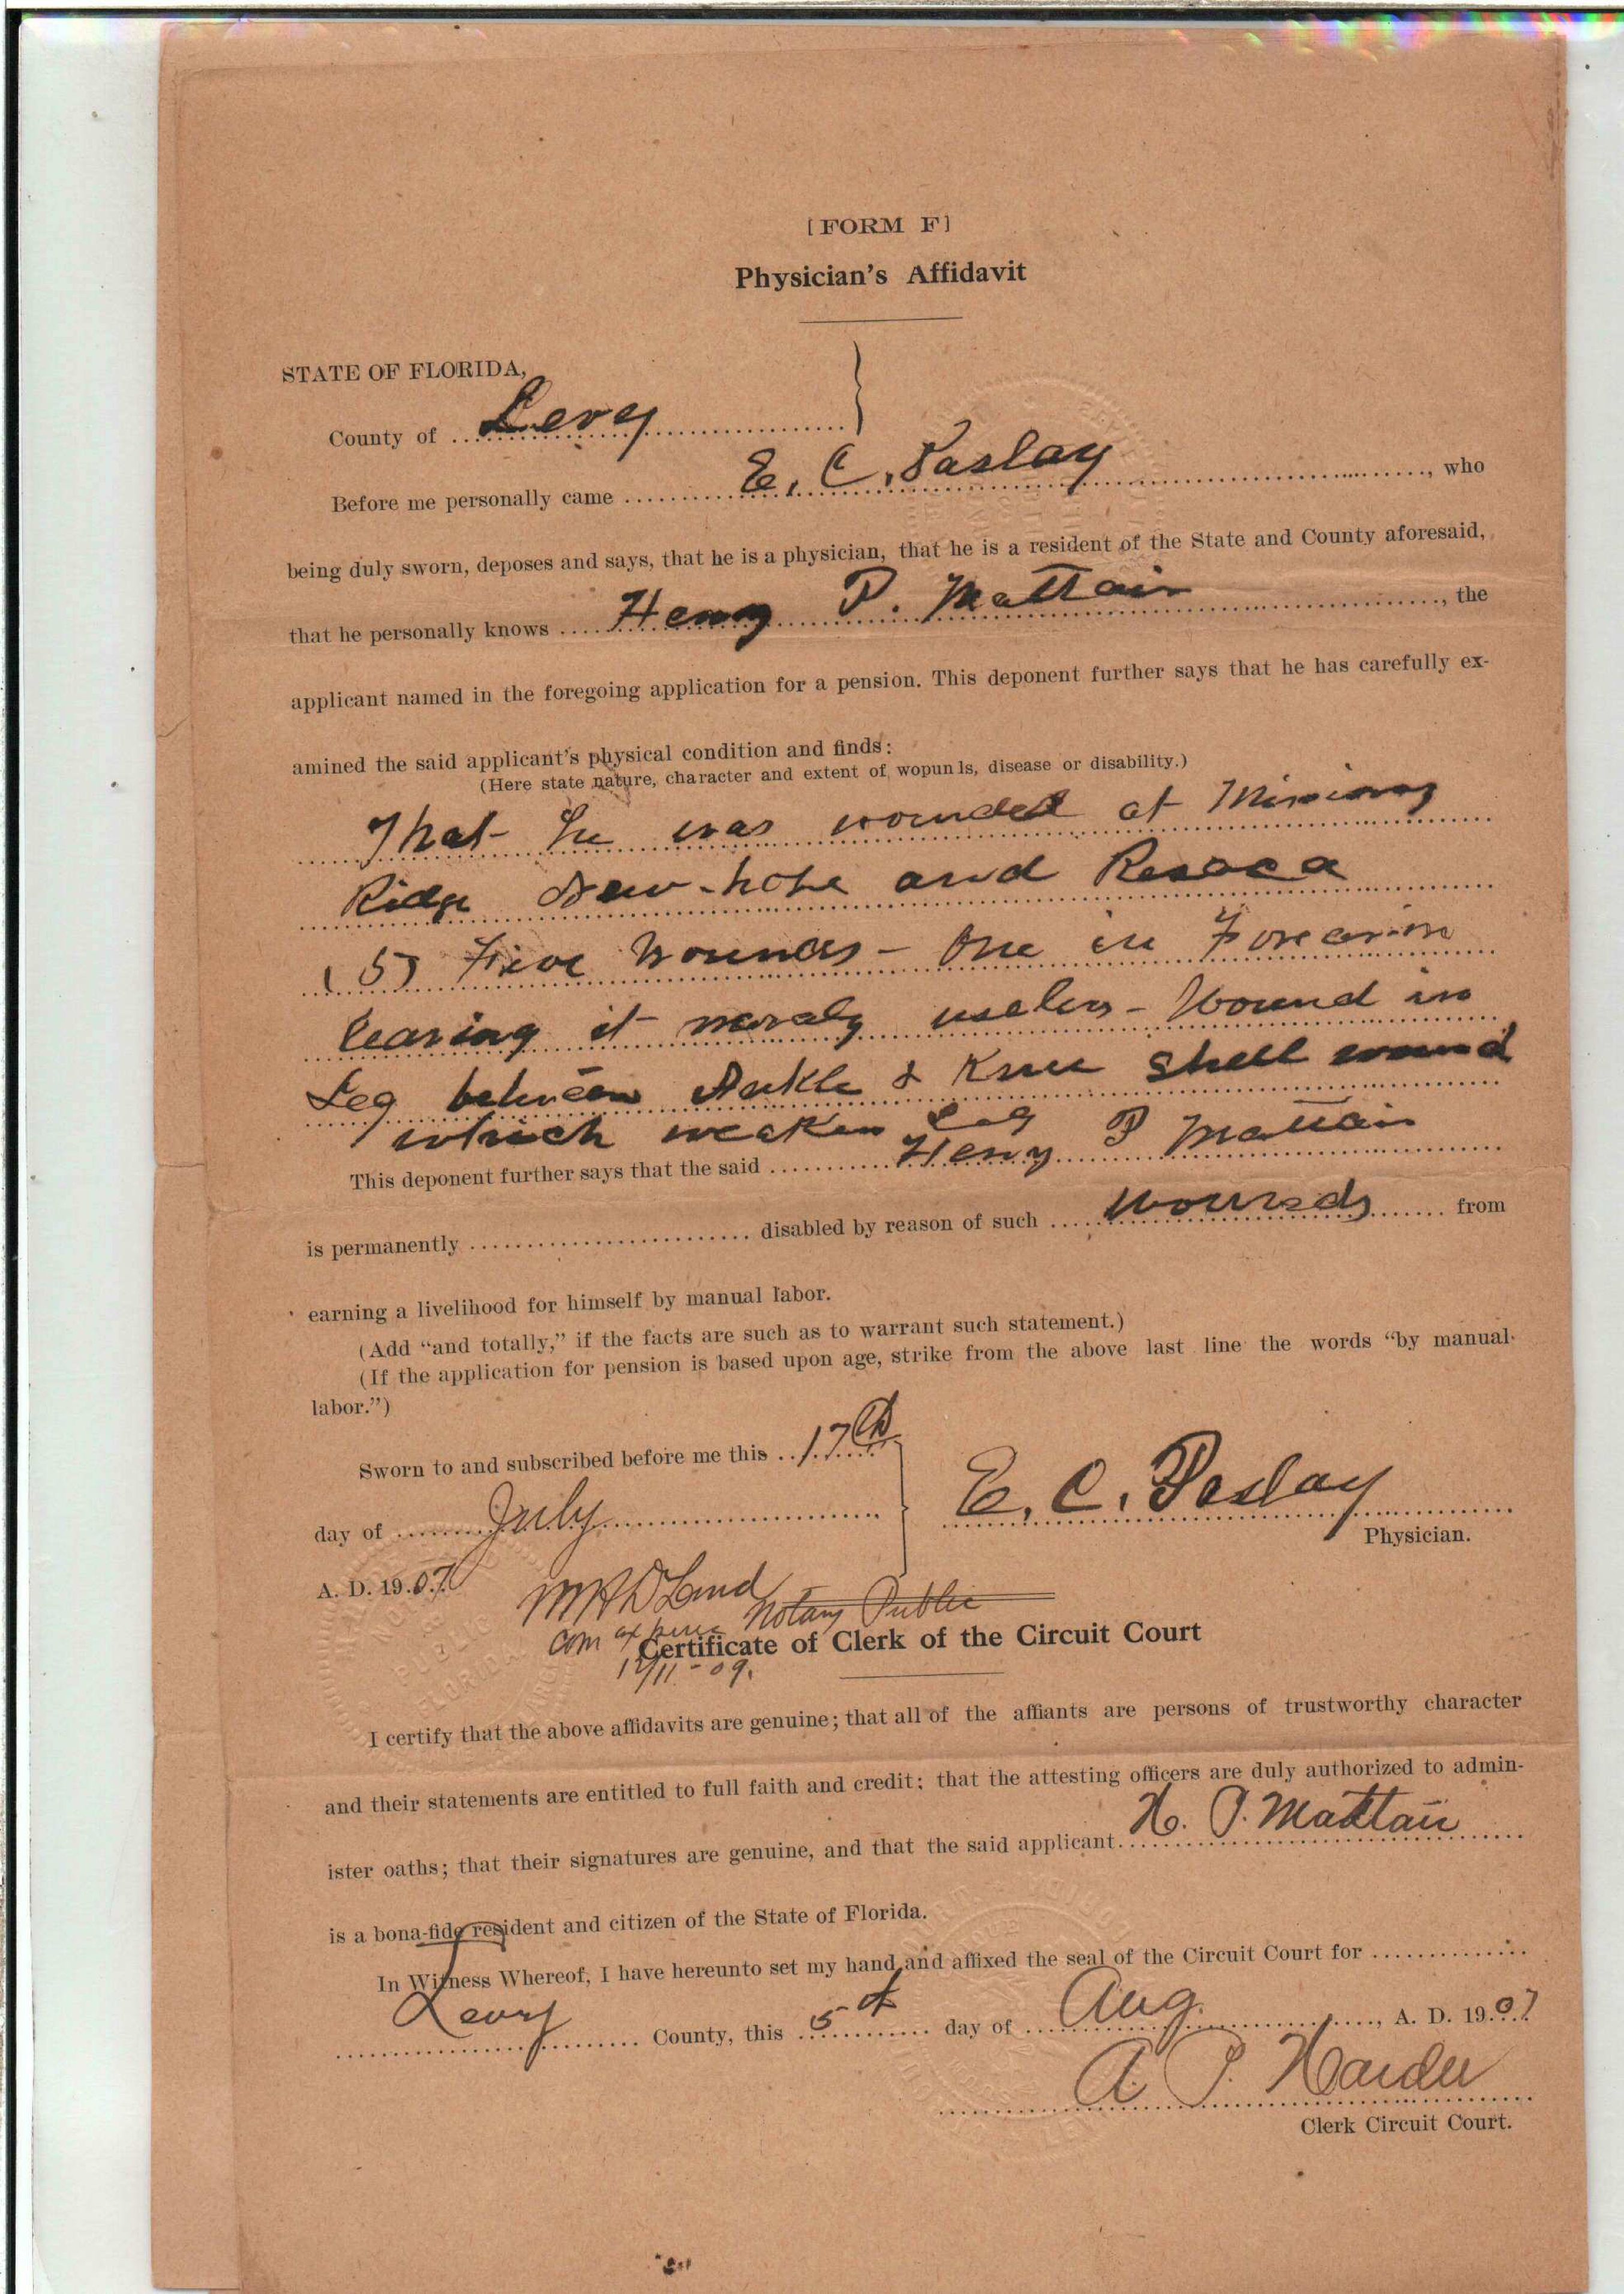 [FORM F]
Physician's Affidavit
STATE OF FLORIDA,
County of Levy
Before me personally came E. C. Paslay, who
being duly sworn, deposes and says, that he is a physician, that he is a resident of the State and County aforesaid,
that he personally knows Henry P. Mattair, the
applicant named in the foregoing application for a pension. This deponent further says that he has carefully ex-
amined the said applicant's physical condition and finds:
(Here state nature, character and extent of wopunls, disease or disability.)
That he was wounded at Missionary
Ridge New-hope and Resaca
(5) Five Wounds - One in Forearm
leaving it useless - Wound in
Leg between Ankle & Knee Shell wound
which weaken Leg
This deponent further says that the said Henry P Mattair
is permanently disabled by reason of such wounds from
earning a livelihood for himself by manual labor.
(Add "and totally," if the facts are such as to warrant such statement.)
(If the application for pension is based upon age, strike from the above last line the words "by manual
labor.")
Sworn to and subscribed before me this 17th
day of July
E. C. Paslay
Physician.
A. D. 1907
Notary Public
Com expires
12/11-09.
Certificate of Clerk of the Circuit Court
I certify that the above affidavits are genuine; that all of the affiants are persons of trustworthy character
and their statements are entitled to full faith and credit; that the attesting officers are duly authorized to admin-
ister oaths; that their signatures are genuine, and that the said applicant H. P. Mattair
is a bona-fide resident and citizen of the State of Florida.
In Witness Whereof, I have hereunto set my hand and affixed the seal of the Circuit Court for
Levy County, this 5th day of Aug., A. D. 1907
A. P. Hardee
Clerk Circuit Court.